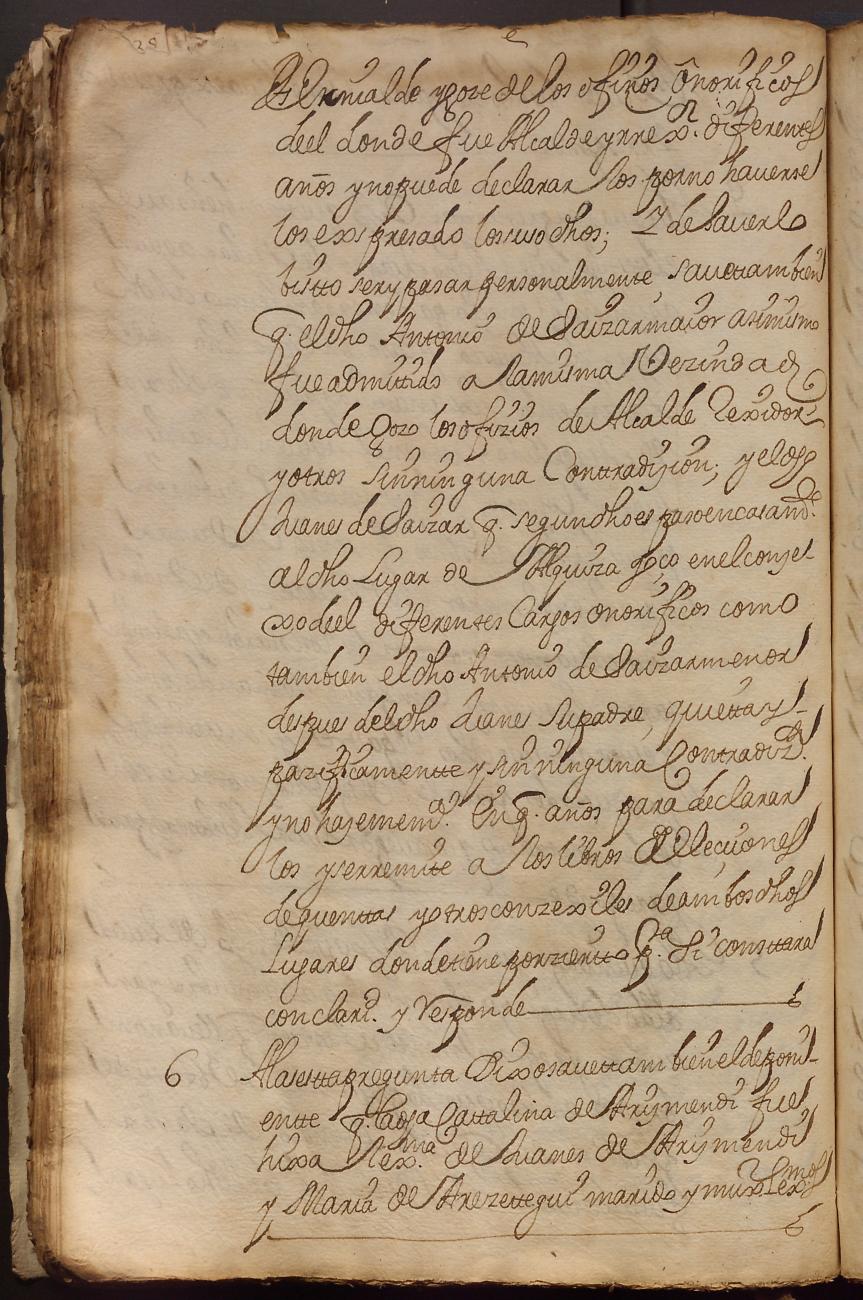 de Ernialde y goze de los ofizios Onorificos
deel donde fue Alcalde y rrex.or diferentes
años y no puede declarar los por no haverse
los expresado los suso dhos; I de haverlo
bistto ser y pasar personalmente, save tambien
q. el dho Antonio de Saizar maior asimismo
fue admitido a la misma Vezindad
donde gozo los ofizios de Alcalde Rexidor
y otros sin ninguna Contradizion; y el dho
Juanes de Saizar q. segun dho es paso en casand.o
al dho Lugar de Alquiza gozo en el conze
xo deel diferentes Cargos onorificos como
tambien el dho Antonio de Saizar menor
despues del dho Juanes su padre, quietta y
pazificamentte y sin ninguna Contradiz.on
y no haze mem.a En q. años para declarar
los y se rremite a los libros de Elecciones
de quenttas y otros conzexiles de ambos dhos
Lugares donde tiene por zientto q.a Si consttara
con clarid. y Responde
6 A la sestta pregunta Dixo save ttambien el depon
entte q. la dha Cattalina de Arijmendi fue
hixa lex.ma de Juanes de Arijmendi
y Maria de Arezettegui marido y mux.r lex.mos